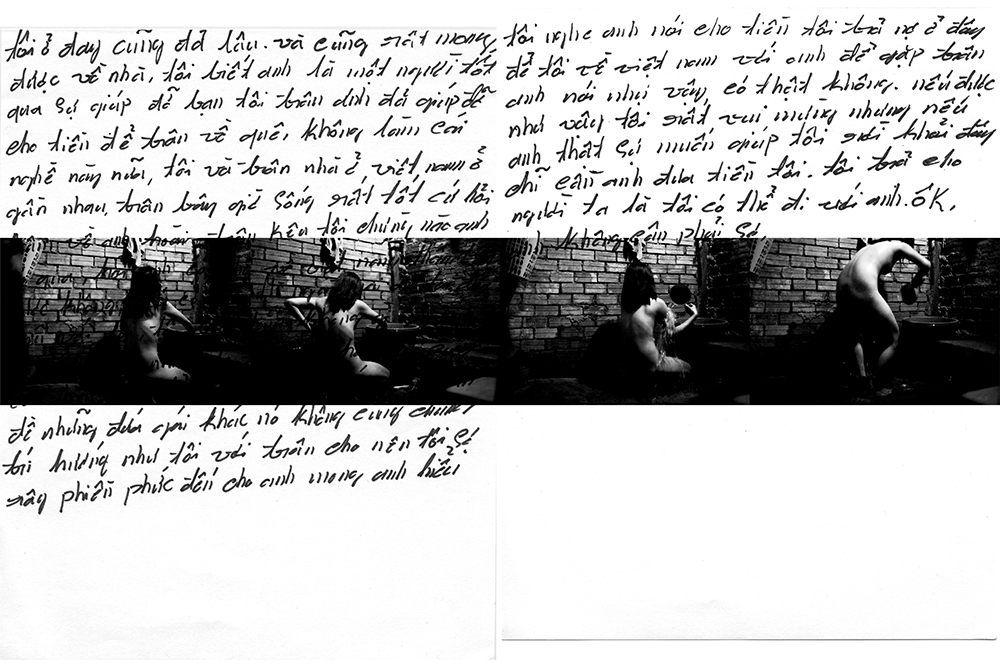 tôi ở đay cũng đã lâu. và cũng rất mong
được về nhà, tôi biết anh là một người tốt
qua sự giúp đỡ bạn tôi trân anh đã giúp đỡ
cho tiền để trân về quê, không làm cái
nghề này nữa, tôi và trân nhà ở việt nam ở
gần nhau, trân bây giờ sống rất tốt cứ hỏi
về anh hoài trân kêu tôi chừng nào anh
để những đứa gái khác nó không cùng chung
trí hướng như tôi với trân cho nên tôi sợ
rây phiền phức đến cho anh mong anh hiểu
tôi nghe anh nói cho tiền tôi trả nợ ở đây
để tôi về việt nam với anh để gặp trân
anh nói như vậy có thật không. nếu được
như vậy tôi rất vui mừng nhưng nếu
anh thật sự muốn giúp tôi rời khỏi đây
chỉ cần anh đưa tiền tôi. tôi trả cho
người ta là tôi có thể đi với anh. ÔK.
không cần phải sợ